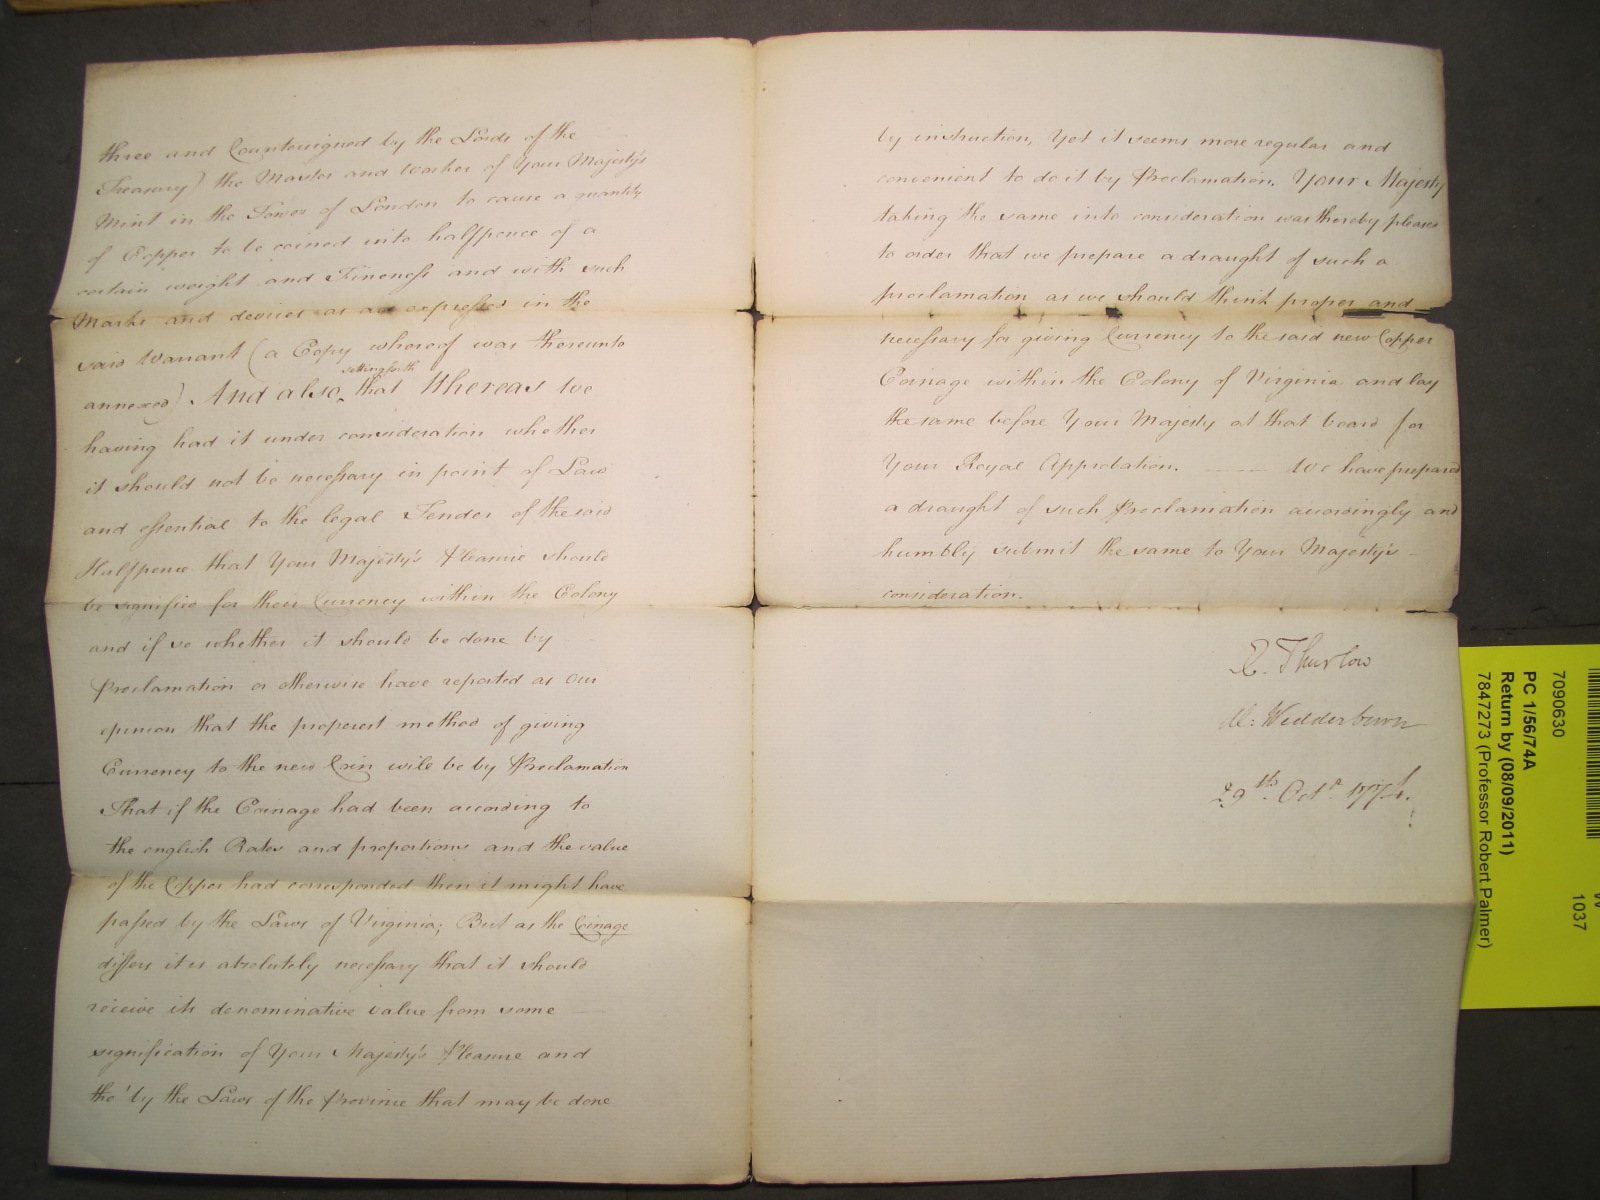 three and Countersigned by the Lords of the
Treasury) the Master and Worker of Your Majesty's
Mint in the Tower of London to cause a quantity
of Copper to be coined into halfpence of a
certain weight and Fineness and with such
Marks and devices as are expressed in the
said Warrant (a Copy whereof was thereunto
setting forth
annexed) And also that Whereas We
having had it under consideration whether
it should not be necessary in point of Law
and essential to the legal Tender of the said
Halfpence that Your Majesty's Pleasure should
be signified for their Currency within the Colony
and if so whether it should be done by
Proclamation or otherwise have reported as our
opinion that the properest method of giving
Currency to the new Coin will be by Proclamation
That if the Coinage had been according to
the english Rates and proportions and the value
of the Copper had corresponded then it might have
passed by the Laws of Virginia; But as the Coinage
differs it is absolutely necessary that it should
receive its denominative value from some
signification of Your Majesty's Pleasure and
tho' by the Laws of the Province that may be done
by instruction, Yet it seems more regular and
convenient to do it by Proclamation. Your Majesty
taking the same into consideration was thereby pleased
to order that we prepare a draught of such a
proclamation as we should think proper and
necessary for giving Currency to the said new Copper
Coinage within the Colony of Virginia and lay
the same before Your Majesty at that board for
Your Royal Approbation. We have prepared
a draught of such Proclamation accordingly and
humbly submit the same to Your Majesty's
consideration.
E. Thurlow
Al: Wedderburn
29th. Octr. 1774.
7090630
PC 1/56/74A
Return by (08/09/2011)
7847273 (Professor Robert Palmer)
1037